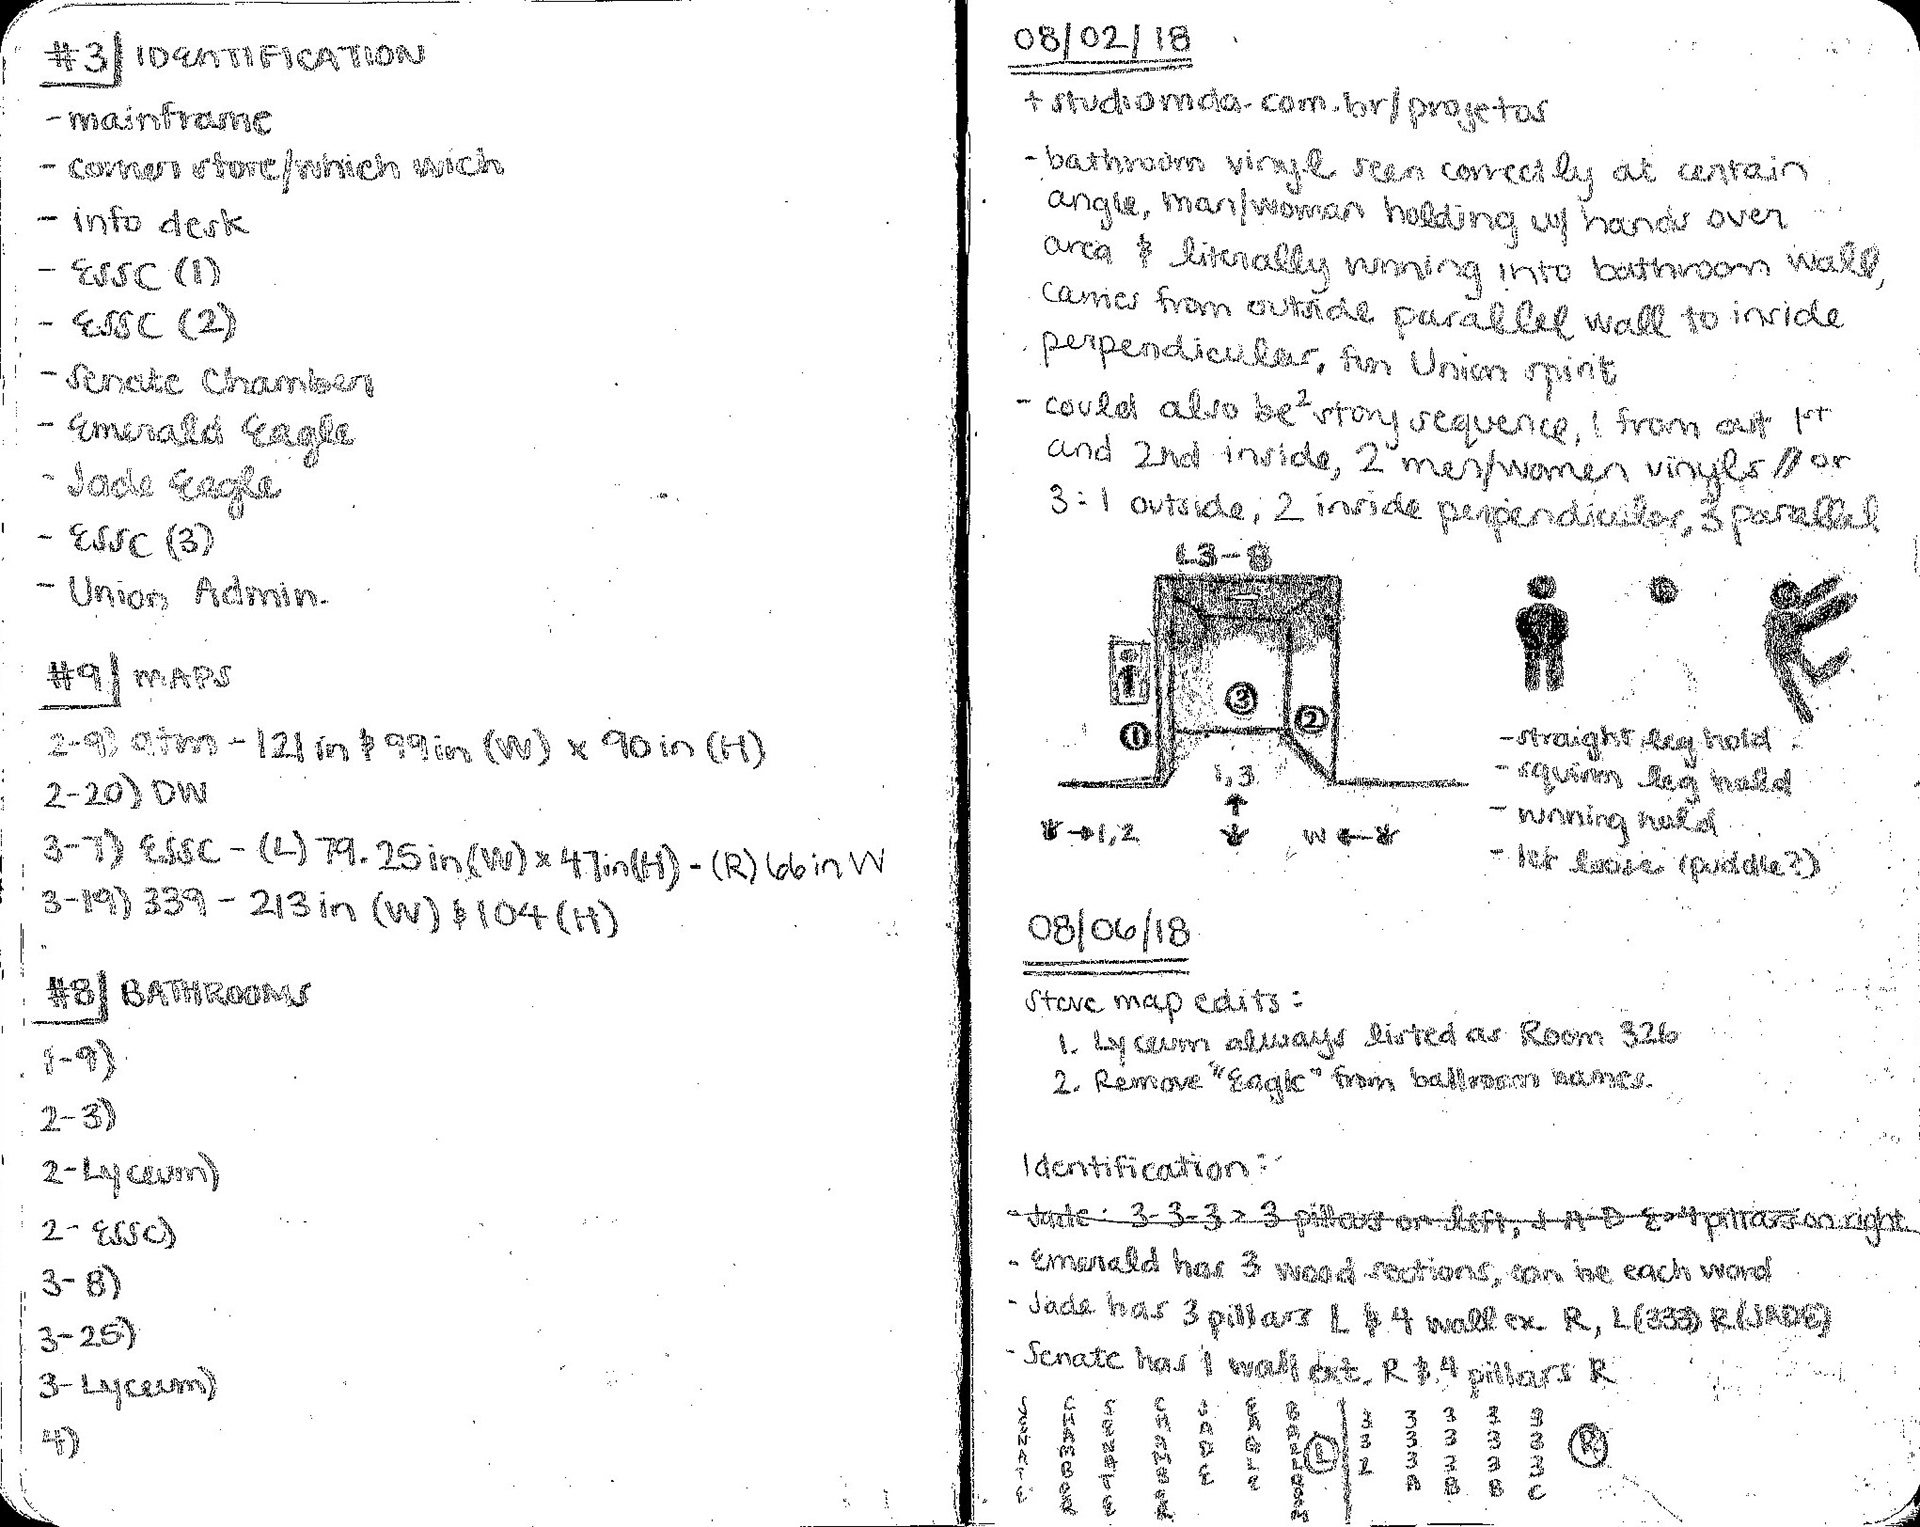 #3 IDENTIFICATION
- mainframe
- corner store/which wich
- info desk
- ESSC (1)
- ESSC (2)
- Senate Chamber
- Emerald Eagle
- Jade Eagle
- ESSC (3)
- Union Admin.
#9 MAPS
2-9) atm - 121 in & 99 in (W) x 90 in (H)
2-20) DW
3-7) ESSC - (L) 79.25 in (W) x 47 in (H) - (R) 66 in W
3-19) 339 - 213 in (W) & 104 (H)
#8 BATHROOMS
1-9)
2-3)
2-Lyceum)
2- ESSC)
3-8)
3-25)
3-Lyceum)
4)
08/02/18
+ studiomda.com.br/projetos
- bathroom vinyl seen correctly at certain
angle, man/woman holding w/ hands over
area & literally running into bathroom wall,
carries from outside parallel wall to inside
perpendicular, fun Union spirit
- could also be 2 story sequence, 1 from out 1st
and 2nd inside, 2 men/women vinyls // or
3: 1 outside, 2 inside perpendicular, 3 parallel
L3-8
① ③ ②
1,3
→1,2
W ←
- straight leg hold
- squirm leg hold
- running hold
- let loose (puddle?)
08/06/18
Steve map edits:
1. Lyceum always listed as Room 326
2. Remove "Eagle" from ballroom names.
Identification:
- Jade: 3-3-3 > 3 pillars on left, J A D E > 4 pillars on right
- Emerald has 3 wood sections, can be each word
- Jade has 3 pillars L & 4 wall ex. R, L(333) R(JADE)
- Senate has 1 wall ext. R & 4 pillars R
SENATE CHAMBER SENATE CHAMBER JADE EAGLE BALLROOM Ⓛ 332 333B 33B 333B 333C Ⓡ